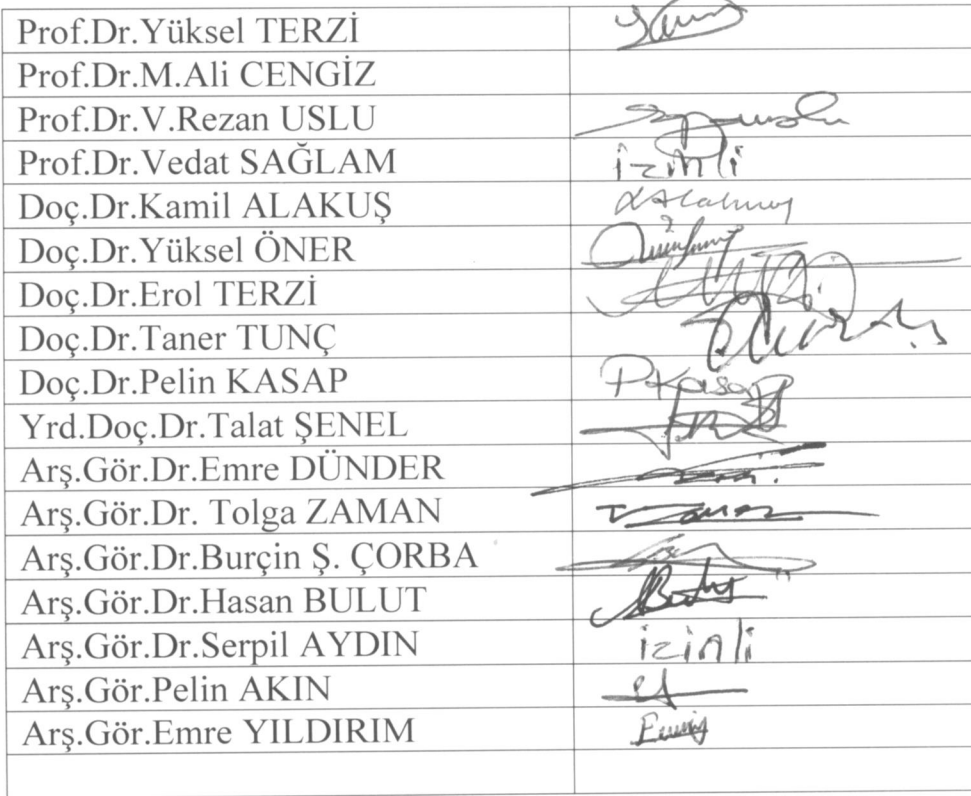 Prof.Dr.Yüksel TERZİ
Prof.Dr.M.Ali CENGİZ
Prof.Dr.V.Rezan USLU
Prof.Dr.Vedat SAĞLAM izinli
Doç.Dr.Kamil ALAKUŞ
Doç.Dr.Yüksel ÖNER
Doç.Dr.Erol TERZİ
Doç.Dr.Taner TUNÇ
Doç.Dr.Pelin KASAP PKasap
Yrd.Doç.Dr.Talat ŞENEL
Arş.Gör.Dr.Emre DÜNDER
Arş.Gör.Dr. Tolga ZAMAN
Arş.Gör.Dr.Burçin Ş. ÇORBA
Arş.Gör.Dr.Hasan BULUT
Arş.Gör.Dr.Serpil AYDIN izinli
Arş.Gör.Pelin AKIN
Arş.Gör.Emre YILDIRIM